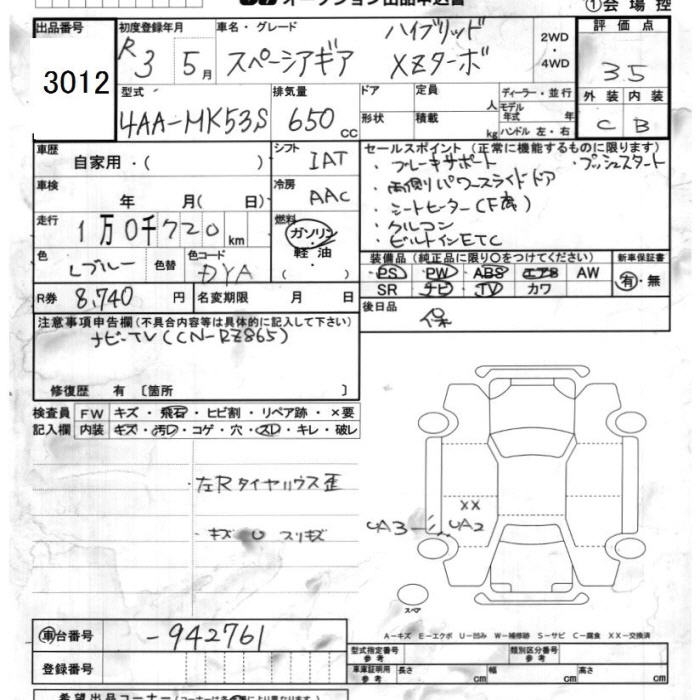 オークション出品申込書
①会場控
出品番号 初度登録年月 車名・グレード ハイブリッド 2WD・4WD 評価点
3012 R3 5月 スペーシアギア XZターボ 35
型式 排気量 ドア 定員 人 ディーラー・並行 外装 内装
4AA-MK53S 650cc 形状 積載 kg モデル年式 年 ハンドル 左・右 C B
車歴 シフト セールスポイント(正常に機能するものに限ります)
自家用・( ) IAT ・ブレーキサポート ・プッシュスタート
車検 冷房 ・両側パワースライドドア
年 月(日) AAC ・シートヒーター(F席)
走行 燃料 ・クルコン
1万0千720km ガソリン ・ビルトインETC
色 色替 色コード 軽油 装備品(純正品に限り○をつけてください) 新車保証書
Lブルー DYA (・) PS PW ABS エアB AW 有・無
R券 8,740円 名変期限 月 日 SR ナビ TV カワ
注意事項申告欄(不具合内容等は具体的に記入して下さい) 後日品
ナビ-TV(CN-RZ865) 保
修復歴 有 〔箇所 〕
検査員 FW キズ・飛石・ヒビ割・リペア跡・×要
記入欄 内装 キズ・汚レ・コゲ・穴・スレ・キレ・破レ
・左Rタイヤハウス歪
・キズ U スリキズ
XX
UA3 UA2
スペア
A-キズ E-エクボ U-凹み W-補修跡 S-サビ C-腐食 XX-交換済
車台番号 -942761 型式指定番号 参考 類別区分番号 参考
登録番号 車庫証明用 参考 長さ cm 幅 cm 高さ cm
希望出品コーナー